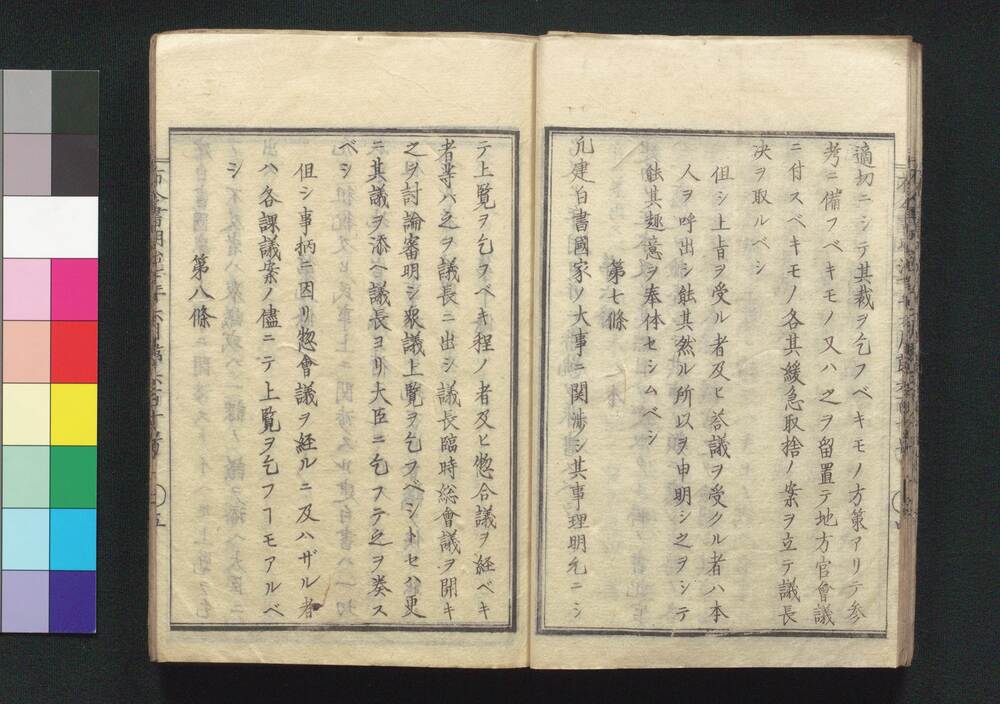 適切ニシテ其裁ヲ乞フベキモノ方策アリテ参
考ニ備フベキモノ又ハ之ヲ留置テ地方官會議
ニ付スベキモノ各其緩急取捨ノ案ヲ立テ議長
决ヲ取ルベシ
但シ上旨ヲ受ル者及ヒ咨議ヲ受クル者ハ本
人ヲ呼出シ能其然ル所以ヲ申明シ之ヲシテ
能其趣意ヲ奉体セシムベシ
第七條
凢建白書國家ノ大事ニ関渉シ其事理明允ニシ
テ上覧ヲ乞フベキ程ノ者及ヒ惣合議ヲ経ベキ
者等ハ之ヲ議長ニ出シ議長臨時総會議ヲ開キ
之ヲ討論審明シ衆議上覧ヲ乞フベシトセハ更
ニ其議ヲ添ヘ議長ヨリ大臣ニ乞フテ之ヲ奏ス
ベシ
但シ事柄ニ因リ惣會議ヲ経ルニ及ハザル者
出ハ各課議案ノ儘ニテ上覧ヲ乞フヿモアルベ
シ
第八條